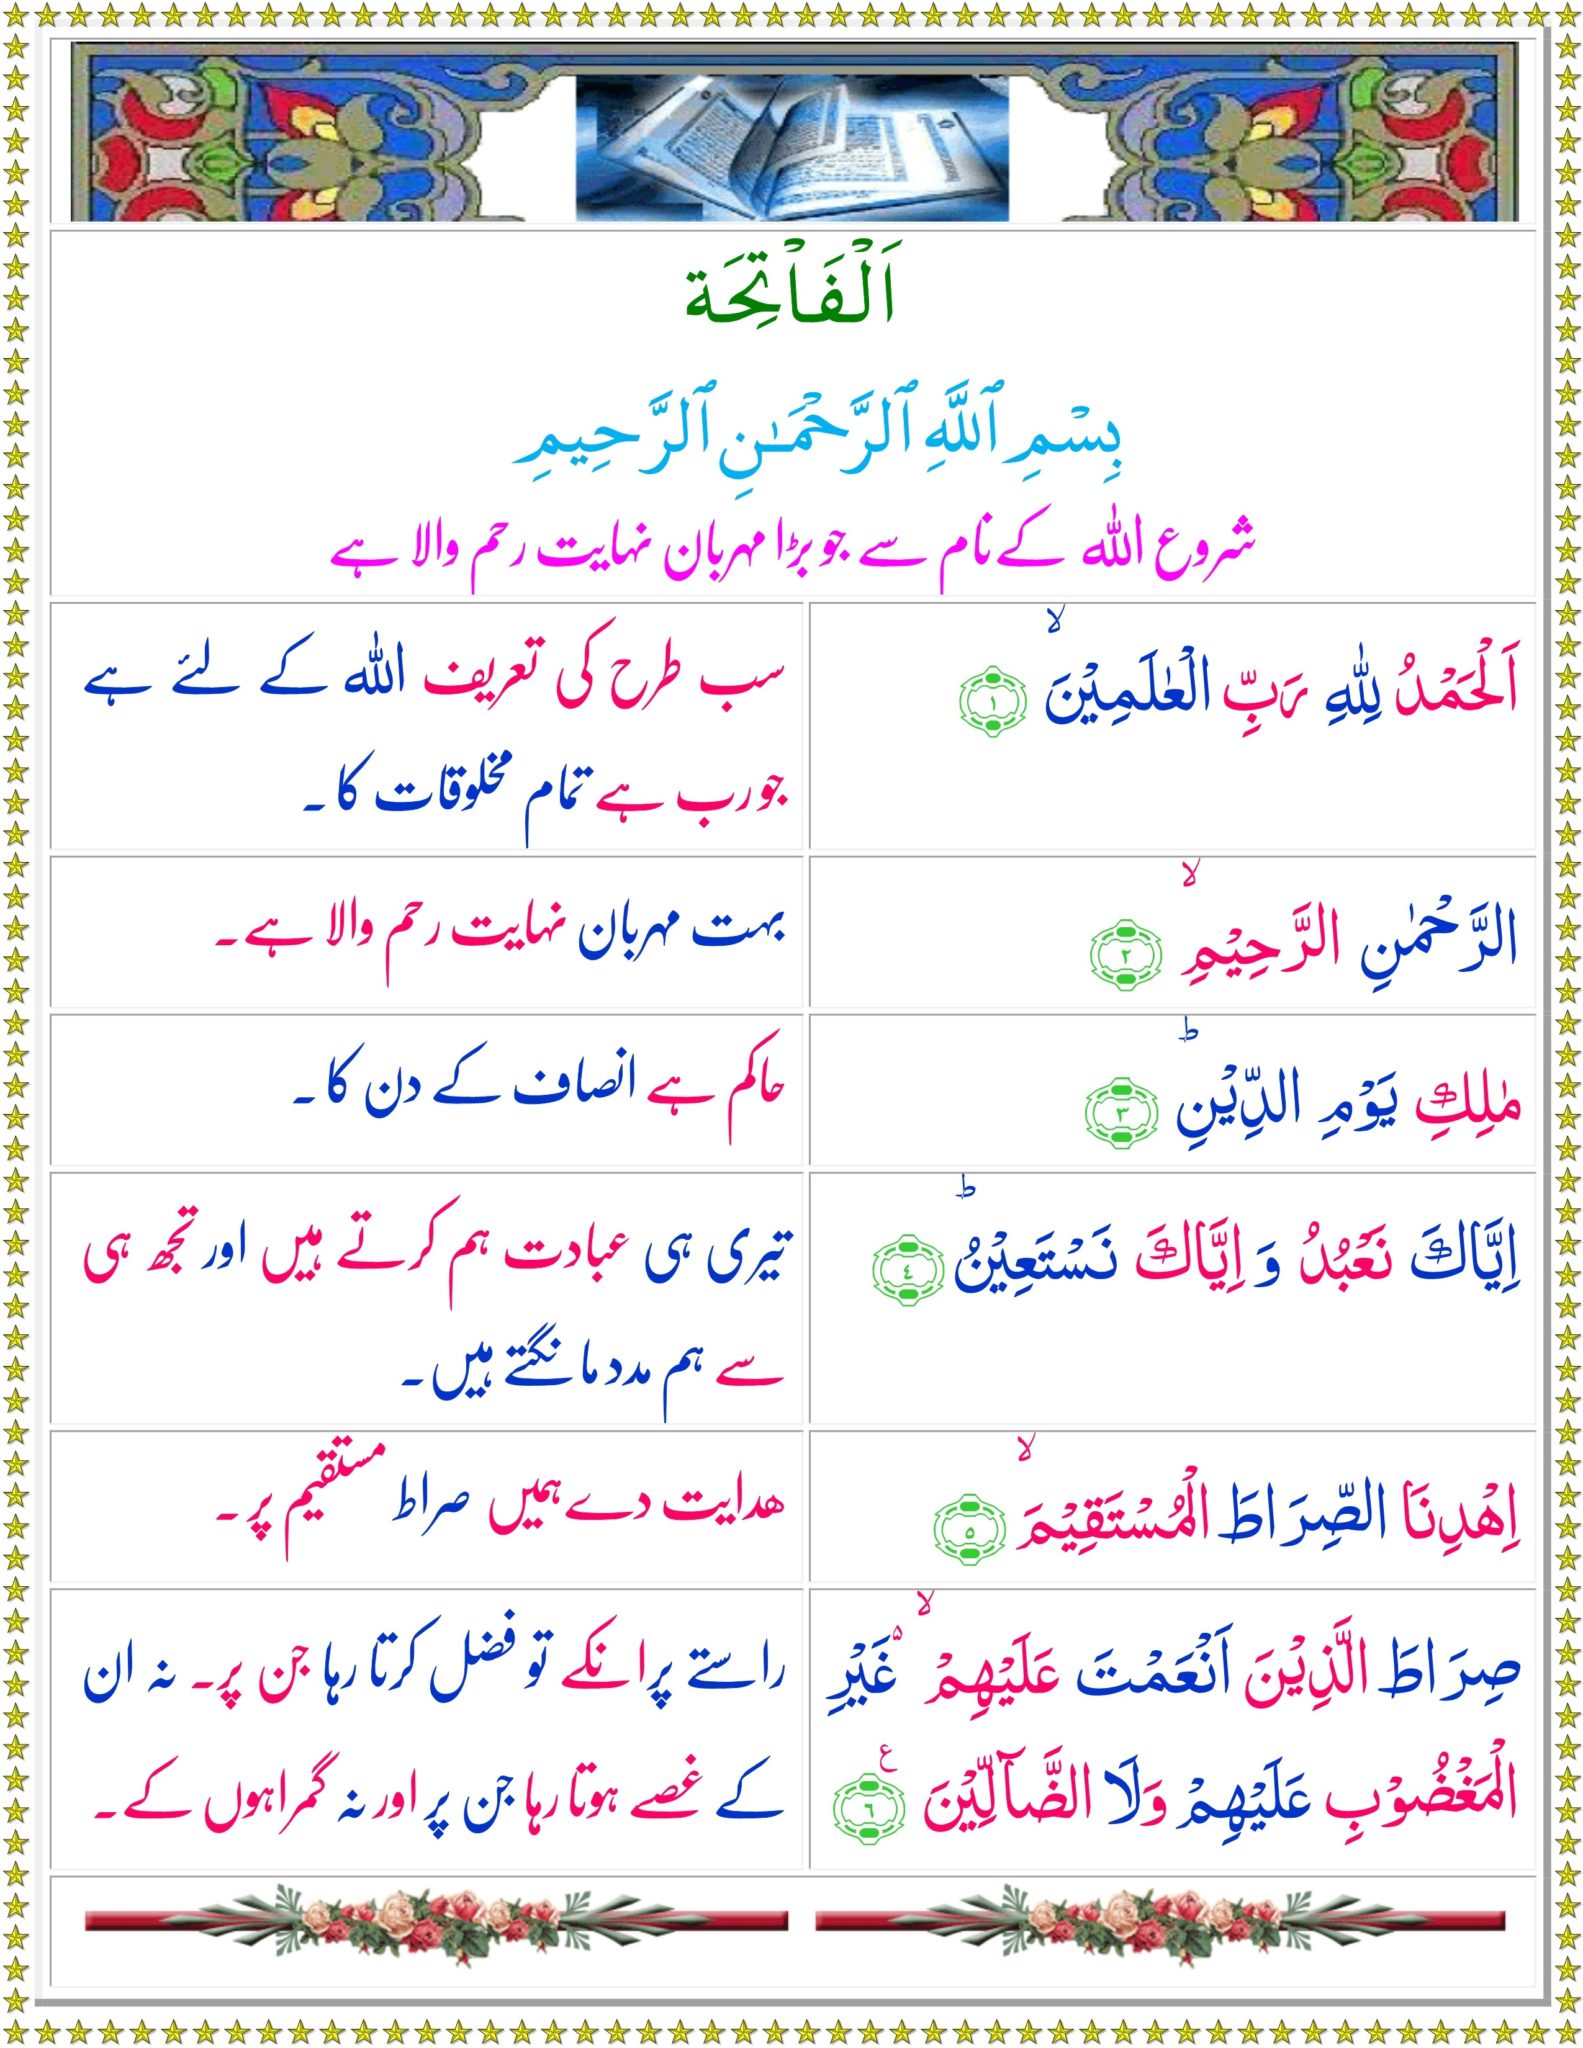 اَلْفَاْتِحَة
بِسْمِ ٱللَّهِ ٱلرَّحْمَـٰنِ ٱلرَّحِيمِ
شروع اللہ کے نام سے جو بڑا مہربان نہایت رحم والا ہے
اَلْحَمْدُ لِلّٰهِ رَبِّ الْعٰلَمِيْنَ ۙ ١
سب طرح کی تعریف اللہ کے لئے ہے
جو رب ہے تمام مخلوقات کا۔
الرَّحْمٰنِ الرَّحِيْمِ ۙ ٢
بہت مہربان نہایت رحم والا ہے۔
مٰلِكِ يَوْمِ الدِّيْنِ ؕ ٣
حاکم ہے انصاف کے دن کا۔
اِيَّاكَ نَعْبُدُ وَ اِيَّاكَ نَسْتَعِيْنُ ؕ ٤
تیری ہی عبادت ہم کرتے ہیں اور تجھ ہی
سے ہم مدد مانگتے ہیں۔
اِهْدِنَا الصِّرَاطَ الْمُسْتَقِيْمَ ۙ ٥
ھدایت دے ہمیں صراط مستقیم پر۔
صِرَاطَ الَّذِيْنَ اَنْعَمْتَ عَلَيْهِمْ ۙ۬ ۵ غَيْرِ
الْمَغْضُوْبِ عَلَيْهِمْ وَلَا الضَّآلِّيْنَ ع ٦
راستے پر انکے تو فضل کرتا رہا جن پر۔ نہ ان
کے غصے ہوتا رہا جن پر اور نہ گمراہوں کے۔